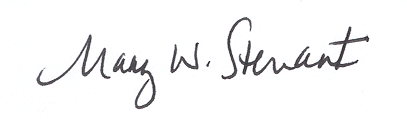 Mary W. Stewart